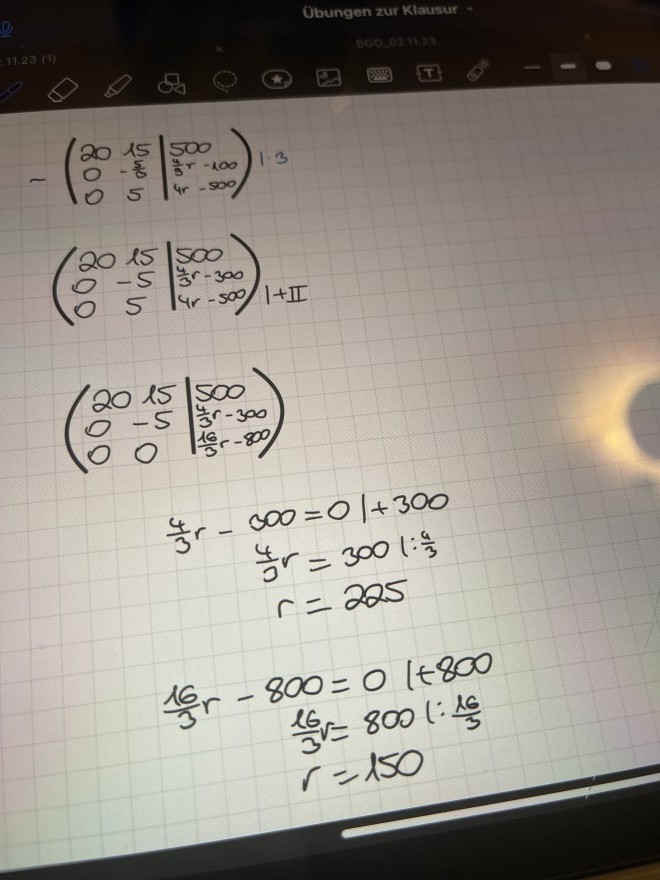 Übungen zur Klausur
.11.23 (1)
BGO_02.11.23
~ (20 15 | 500
0 -5/3 | 4/3r -100
0 5 | 4r -500) |·3
(20 15 | 500
0 -5 | 4/3r -300
0 5 | 4r -500) |+II
(20 15 | 500
0 -5 | 4/3r -300
0 0 | 16/3r -800)
4/3r - 300 = 0 |+300
4/3r = 300 |:4/3
r = 225
16/3r - 800 = 0 |+800
16/3r = 800 |:16/3
r = 150